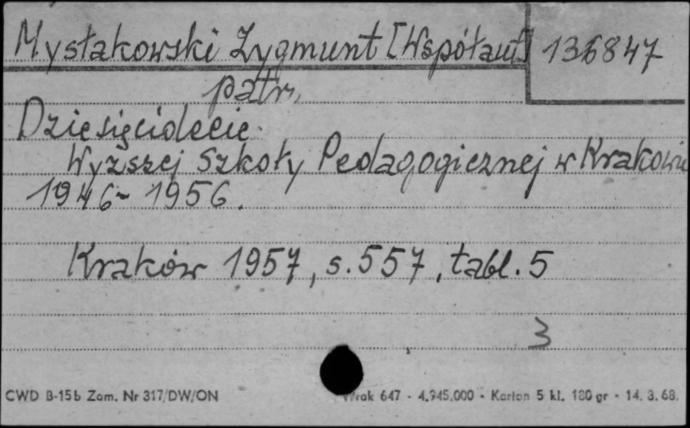 Mysłakowski Zygmunt [Współaut] 136847
patr.
Dziesięciolecie
Wyższej Szkoły Pedagogicznej w Krakowie
1946-1956.
Kraków 1957, s. 557, tabl. 5
3
CWD B-15b Zam. Nr 317/DW/ON
647 - 4.945.000 - Karton 5 kl. 180 gr - 14. 3. 68.